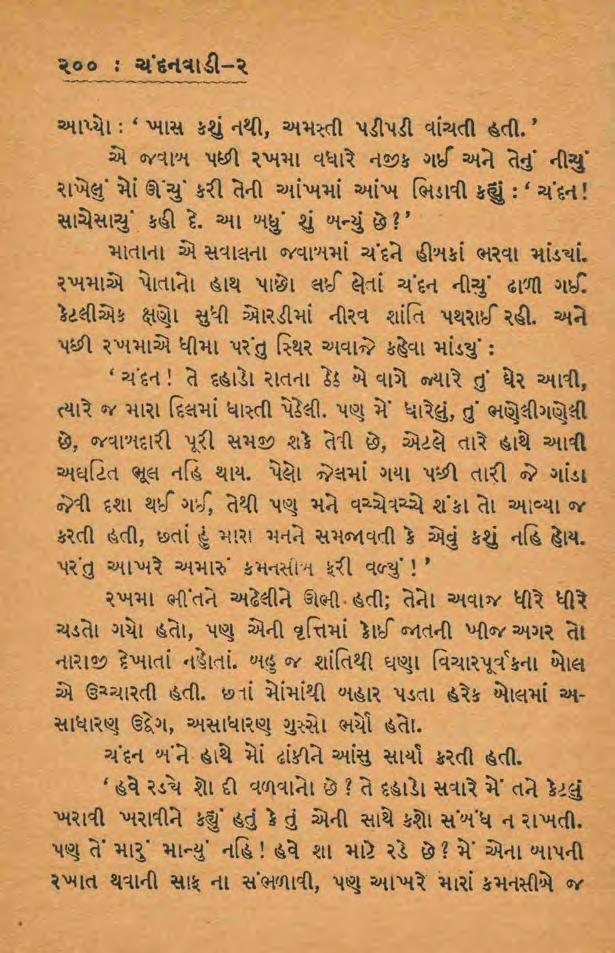 ૨૦૦ : ચંદનવાડી–૨
આપ્યો : ‘ ખાસ કશું નથી, અમસ્તી પડીપડી વાંચતી હતી. ’
એ જવાબ પછી રખમા વધારે નજીક ગઈ અને તેનું નીચું
રાખેલું મોં ઊંચું કરી તેની આંખમાં આંખ ભિડાવી કહ્યું : ‘ ચંદન!
સાચેસાચું કહી દે. આ બધું શું બન્યું છે?’
માતાના એ સવાલના જવાબમાં ચંદને હીબકાં ભરવા માંડ્યાં.
રખમાએ પોતાનો હાથ પાછો લઈ લેતાં ચંદન નીચું ઢાળી ગઈ.
કેટલીએક ક્ષણો સુધી ઓરડીમાં નીરવ શાંતિ પથરાઈ રહી. અને
પછી રખમાએ ધીમા પરંતુ સ્થિર અવાજે કહેવા માંડયું :
‘ ચંદન! તે દહાડો રાતના ઠેઠ બે વાગે જ્યારે તું ઘેર આવી,
ત્યારે જ મારા દિલમાં ધાસ્તી પેઠેલી. પણ મેં ધારેલું, તું ભણેલીગણેલી
છે, જવાબદારી પૂરી સમજી શકે તેવી છે, એટલે તારે હાથે આવી
અઘટિત ભૂલ નહિ થાય. પેલો જેલમાં ગયા પછી તારી જે ગાંડા
જેવી દશા થઈ ગઈ, તેથી પણ મને વચ્ચેવચ્ચે શંકા તો આવ્યા જ
કરતી હતી, છતાં હું મારા મનને સમજાવતી કે એવું કશું નહિ હોય.
પરંતુ આખરે અમારું કમનસીબ ફરી વળ્યું ! ’
રખમા ભીંતને અઢેલીને ઊભી હતી; તેનો અવાજ ધીરે ધીરે
ચડતો ગયો હતો, પણ એની વૃત્તિમાં કોઈ જાતની ખીજ અગર તો
નારાજી દેખાતાં નહોતાં. બહુ જ શાંતિથી ઘણા વિચારપૂર્વકના બોલ
એ ઉચ્ચારતી હતી. છતાં મોંમાંથી બહાર પડતા હરેક બોલમાં અ-
સાધારણ ઉદ્વેગ, અસાધારણ ગુસ્સો ભર્યો હતો.
ચંદન બંને હાથે મોં ઢાંકીને આંસુ સાર્યાં કરતી હતી.
‘ હવે રડયે શો દી વળવાનો છે ? તે દહાડો સવારે મેં તને કેટલું
ખરાવી ખરાવીને કહ્યું હતું કે તું એની સાથે કશો સંબંધ ન રાખતી.
પણ તેં મારું માન્યું નહિ ! હવે શા માટે રડે છે ? મેં એના બાપની
રખાત થવાની સાફ ના સંભળાવી, પણ આખરે મારાં કમનસીબે જ